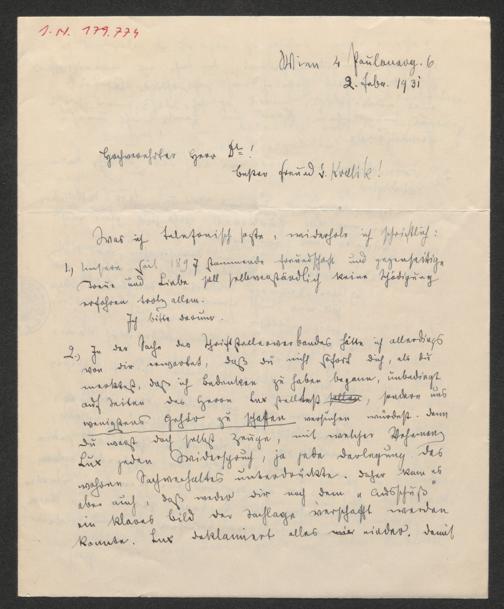 I. N. 179.774
Wien 4 Paulanerg. 6
2. Febr. 1931
Hochverehrter Herr Dr!
bester Freund v. Kralik!
Was ich telefonisch sagte, wiederhole ich schriftlich:
1.) Unsere seit 1897 stammende Freundschaft und gegenseitige
Treue und Liebe soll selbstverständlich keine Schädigung
erfahren trotz allem.
Ich bitte darum.
2.) In der Sache des Schriftstellerverbandes hätte ich allerdings
von dir erwartet, daß du nicht sofort dich, als du
merktest, daß ich Bedenken zu haben begann, unbedingt
auf Seiten des Herrn Lux stelltest, sondern uns
wenigstens Gehör zu schaffen versuchen würdest. Denn
du warst doch selbst Zeuge, mit welcher Vehemenz
Lux jeden Widerspruch, ja jede Darlegung des
wahren Sachverhaltes unterdrückte. Daher kam es
aber auch, daß weder dir noch dem "Ausschuß"
ein klares Bild der Sachlage verschafft werden
konnte. Lux deklamiert alles nieder. Damit